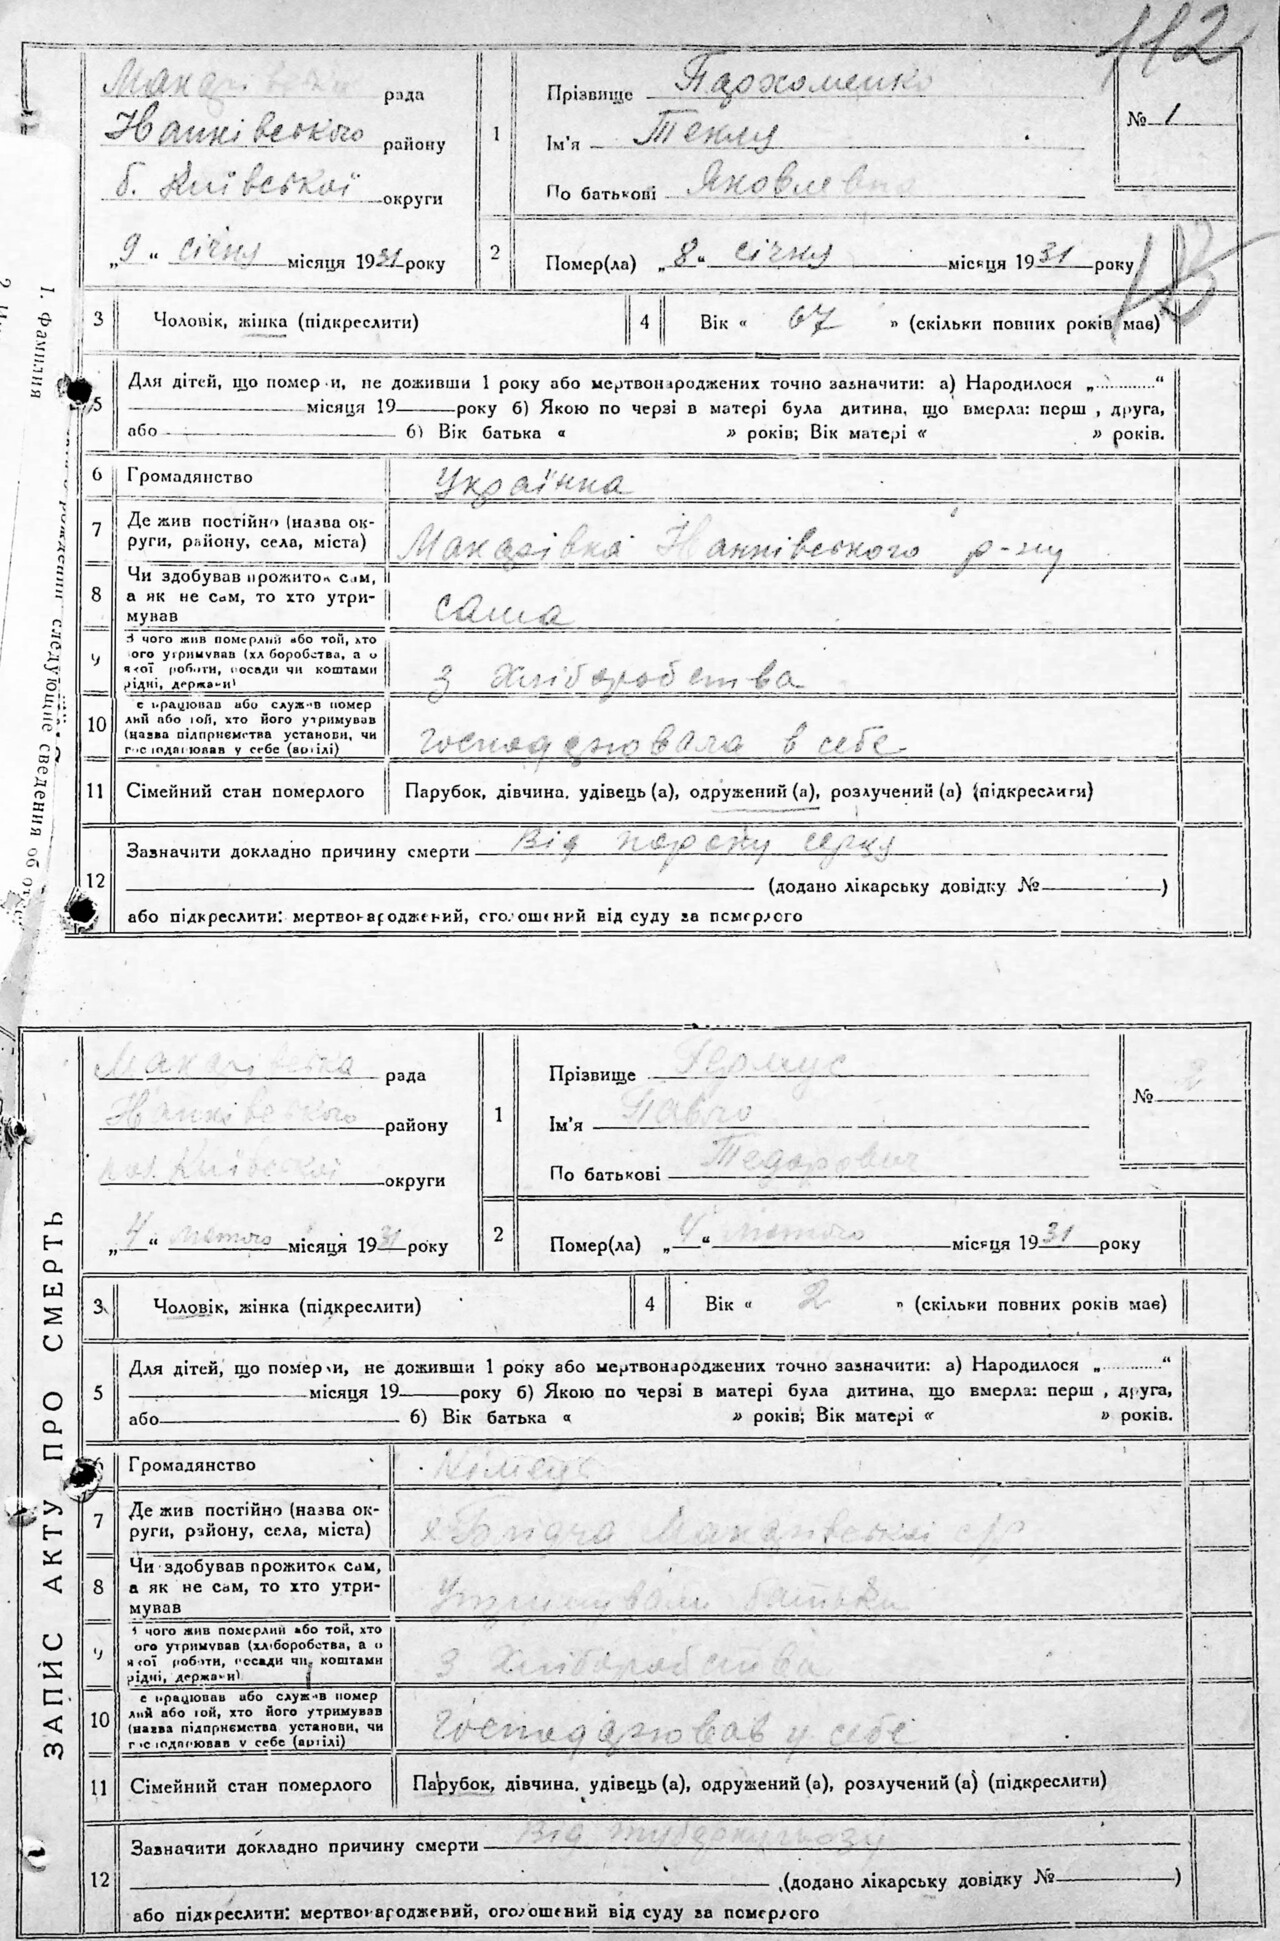 112
рада
Нанківського району
б. Київської округи
„9“ січня місяця 1931 року
1
Прізвище Пархоменко
Ім'я Текля
По батькові Яковлевна
№ 1
2
Помер(ла) „8“ січня місяця 1931 року
3 Чоловік, жінка (підкреслити)
4 Вік « 67 » (скільки повних років має)
5 Для дітей, що помер и, не доживши 1 року або мертвонароджених точно зазначити: а) Народилося „ “
місяця 19 року б) Якою по черзі в матері була дитина, що вмерла: перш , друга,
або б) Вік батька « » років; Вік матері « » років.
6 Громадянство Українка
7 Де жив постійно (назва ок-
руги, району, села, міста) Нанківського р-ну
8 Чи здобував прожиток сам,
а як не сам, то хто утри-
мував сама
9 З чого жив померлий або той, хто
ого утримував (хл боробства, а о
якої роботи, посади чи коштами
рідні, держави) З хліборобства
10 е працював або служив помер
лий або той, хто його утримував
(назва підприємства установи, чи
господарював у себе (артілі) господарювала в себе
11 Сімейний стан померлого Парубок, дівчина, удівець (а), одружений (а), розлучений (а) (підкреслити)
12 Зазначити докладно причину смерти Від пороку серця
(додано лікарську довідку № )
або підкреслити: мертвонароджений, оголошений від суду за померлого
1. фамилия
рождении следующие сведения об от
ЗАПИС АКТУ ПРО СМЕРТЬ
рада
Нанківського району
Київської округи
„4“ лютого місяця 1931 року
1
Прізвище Гермус
Ім'я Павло
По батькові Тедорович
№ 2
2
Помер(ла) „4“ лютого місяця 1931 року
3 Чоловік, жінка (підкреслити)
4 Вік « 2 » (скільки повних років має)
5 Для дітей, що помер и, не доживши 1 року або мертвонароджених точно зазначити: а) Народилося „ “
місяця 19 року б) Якою по черзі в матері була дитина, що вмерла: перш , друга,
або б) Вік батька « » років; Вік матері « » років.
6 Громадянство Німець
7 Де жив постійно (назва ок-
руги, району, села, міста) с/р
8 Чи здобував прожиток сам,
а як не сам, то хто утри-
мував Утримували батьки
9 З чого жив померлий або той, хто
ого утримував (хліборобства, а о
якої роботи, посади чи коштами
рідні, держави) З хліборобства
10 е працював або служив помер
лий або той, хто його утримував
(назва підприємства установи, чи
господарював у себе (артілі) господарював у себе
11 Сімейний стан померлого Парубок, дівчина, удівець (а), одружений (а), розлучений (а) (підкреслити)
12 Зазначити докладно причину смерти Від туберкульозу
(додано лікарську довідку № )
або підкреслити: мертвонароджений, оголошений від суду за померлого